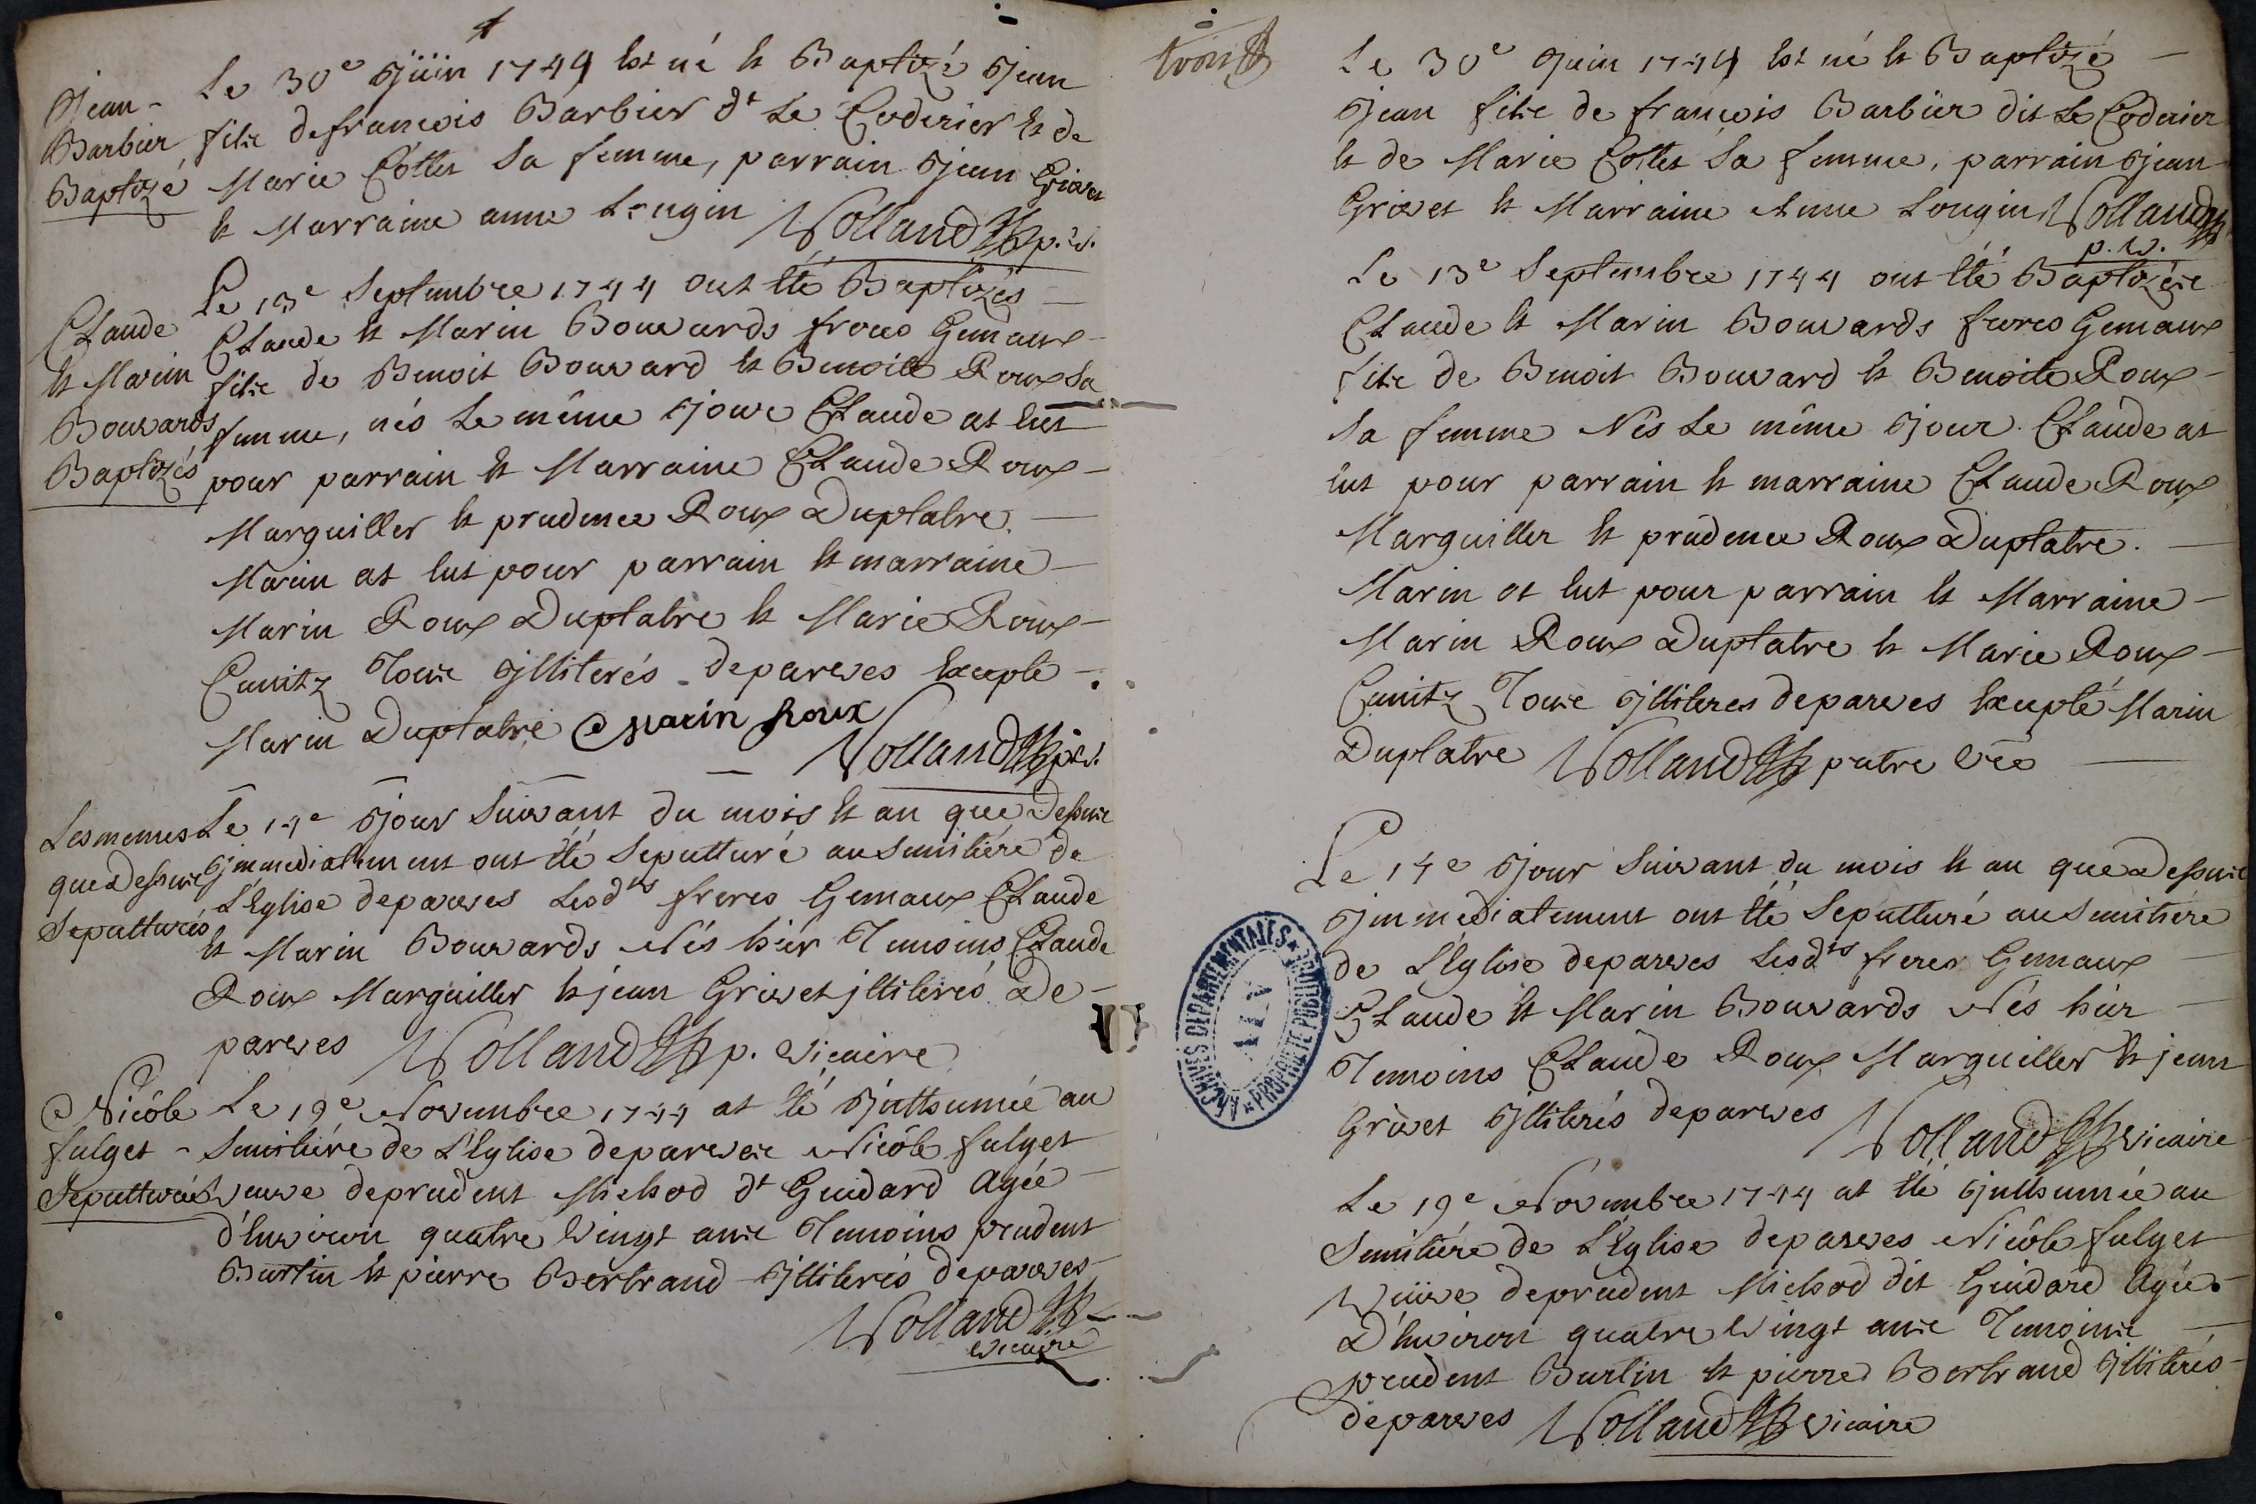 Jean
Barbier
Baptizé
Le 30e Juin 1744 Est né Et Baptizé Jean
fils de francois Barbier dt Le Coderier Et de
Marie Cottet Sa femme, parrain Jean Grivet
Et Marraine anne Longin Volland p. v.
Claude
Et Marin
Bouvards
Baptizés
Le 13e Septembre 1744 ont Eté Baptizés
Claude Et Marin Bouvards freres Gemaux
fils de Benoit Bouvard Et Benoite Roux Sa
femme, nés Le même Jour Claude at Eut
pour parrain Et Marraine Claude Roux
Marguiller Et prudence Roux Duplatre.
Marin at Eut pour parrain Et marraine
Marin Roux Duplatre Et Marie Roux
Cunitz Tous Jlliterés deparves Excepté
Marin Duplatre Marin Roux
Volland p. v.
Les memes
que Dessus
Sepulturés
Le 14e Jour Suivant du mois Et an que Dessus
Jmmediatement ont Eté Sepulturé au Semitiére de
L'Eglise deparves Lesdts freres Gemaux Claude
Et Marin Bouvards Nés hier Temoins Claude
Roux Marguiller Et jean Grivet jlliterés De
parves Volland p. vicaire
Nicôle
fulget
Sepulturée
Le 19e Novembre 1744 at Eté Jnthumée au
Semitiére de L'Eglise deparves Nicôle fulget
Veuve deprudent Michod dt Guidard Agée
d'Environ quatre Vingt ans Temoins prudent
Burtin Et pierre Bertrand Jlliterés deparves
Volland
vicaire
trois
Le 30e Juin 1744 Est né Et Baptizé
Jean fils de francois Barbier dit Le Coderier
Et de Marie Cottet Sa femme, parrain Jean
Grivet Et Marraine Anne Longin Volland
p. v.
Le 13e Septembre 1744 ont Eté Baptizés
Claude Et Marin Bouvards freres Gemaux
fils de Benoit Bouvard Et Benoite Roux
Sa femme Nés Le même Jour Claude at
Eut pour parrain Et marraine Claude Roux
Marguiller Et prudence Roux Duplatre.
Marin at Eut pour parrain Et Marraine
Marin Roux Duplatre Et Marie Roux
Cunitz Tous Jlliteres deparves Excepté Marin
Duplatre Volland pretre vre
Le 14e Jour Suivant du mois Et an que Dessus
Jmmediatement ont Eté Sepulturé au Semitiére
de L'Eglise deparves Lesdts freres Gemaux
Claude Et Marin Bouvards Nés hier
Temoins Claude Roux Marguiller Et jean
Grivet Jlliterés deparves Volland vicaire
ARCHIVES DEPARTEMENTALES
AIN
PROPRIETE PUBLIQUE
Le 19e Novembre 1744 at Eté Jnthumée au
Semitiére de L'Eglise deparves Nicôle fulget
Veuve deprudent Michod dit Guidard Agée
D'Environ quatre Vingt ans Temoins
prudent Burtin Et pierre Bertrand Jlliterés
deparves Volland vicaire